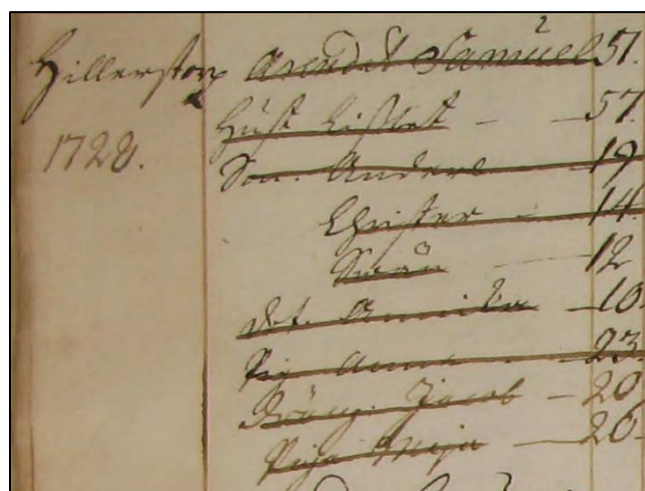 Hillerstorp Arendat Samuel 51.
Hust Lisbet - - 57.
1728.
Son. Anders 19
Christer - 14.
Swän - 12
dot. Annika - 10
Pig Anna - 23.
Dräng. Jacob - 20
Piga Maja - 26.